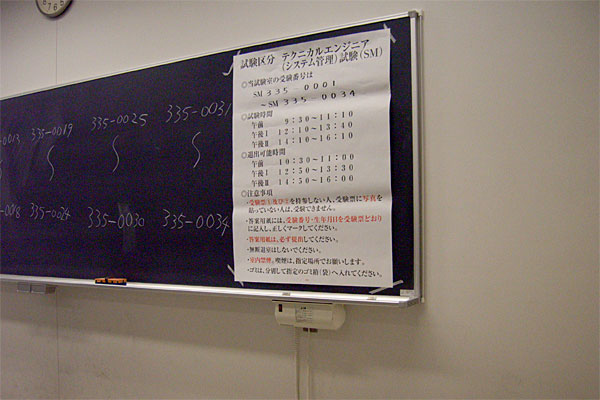 335-0019
335-0025
335-0031
335-0024
335-0030
335-0034
試験区分 テクニカルエンジニア
(システム管理)試験(SM)
○当試験室の受験番号は
SM 335-0001
~SM 335-0034
○試験時間
午前 9:30~11:10
午後Ⅰ 12:10~13:40
午後Ⅱ 14:10~16:10
○退出可能時間
午前 10:30~11:00
午後Ⅰ 12:50~13:30
午後Ⅱ 14:50~16:00
○注意事項
・受験票を持参しない人、受験票に写真を
貼っていない人は、受験できません。
・答案用紙には、受験番号・生年月日を受験票どおり
に記入し、正しくマークしてください。
・答案用紙は、必ず提出してください。
・無断退室はしないでください。
・室内禁煙。喫煙は、指定場所でお願いします。
・ゴミは、分別して指定のゴミ箱(袋)へ入れてください。